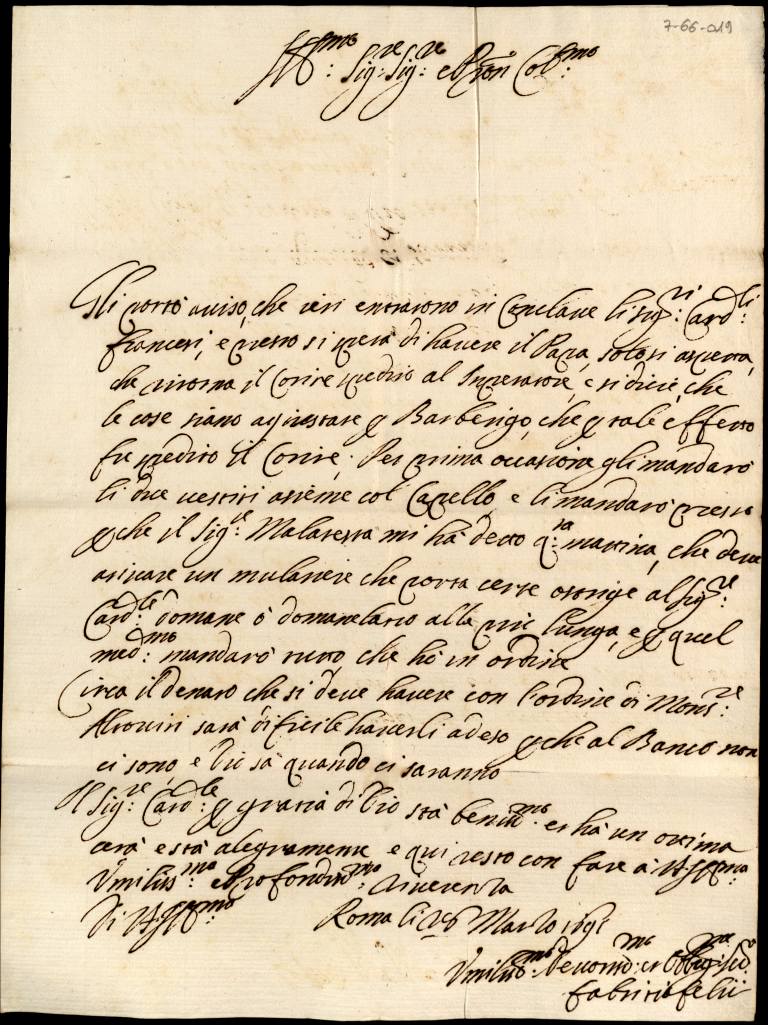 7-66-019
Ill:mo Sig:re Sig:re e Pron Col:mo
Gli porto aviso, che ieri entrarono in Conclave li Sig:ri Card:li
francesi, e presto si spera di havere il Papa, solo si aspetta,
che ritorna il Corire spedito al Imperatore, e si dice, che
le cose siano agiustate p Barberigo, che p tale effetto
fu spedito il Corire. Per prima occasione gli mandarò
li due vestiti assieme col Capello, e li mandarò presto
p che il Sig:re Malatesta mi ha detto q:ta mattina, che deve
arivare un mulatiere che porta certe            al Sig:re
Card:le domane ò domanelatro alla più lunga, e p quel
med:mo mandarò tutto che hò in ordine
Circa il denaro che si deve havere con l'ordine di Mons:re
Altoviti sarà dificile haverli adeso p che al Banco non
ci sono, e Dio sà quando ci saranno
Il Sig:re Card:le p gratia di Dio stà benis:mo et hà un ottima
cera e stà alegramente e qui resto con fare à V S Ill:ma
Umilis:ma e Profondis:ma riverenza
Di V S Ill:ma Roma li 28 Marzo 1691
Umilis:mo Devotis:mo et Oblig:mo Ser:e
Fabritio felii